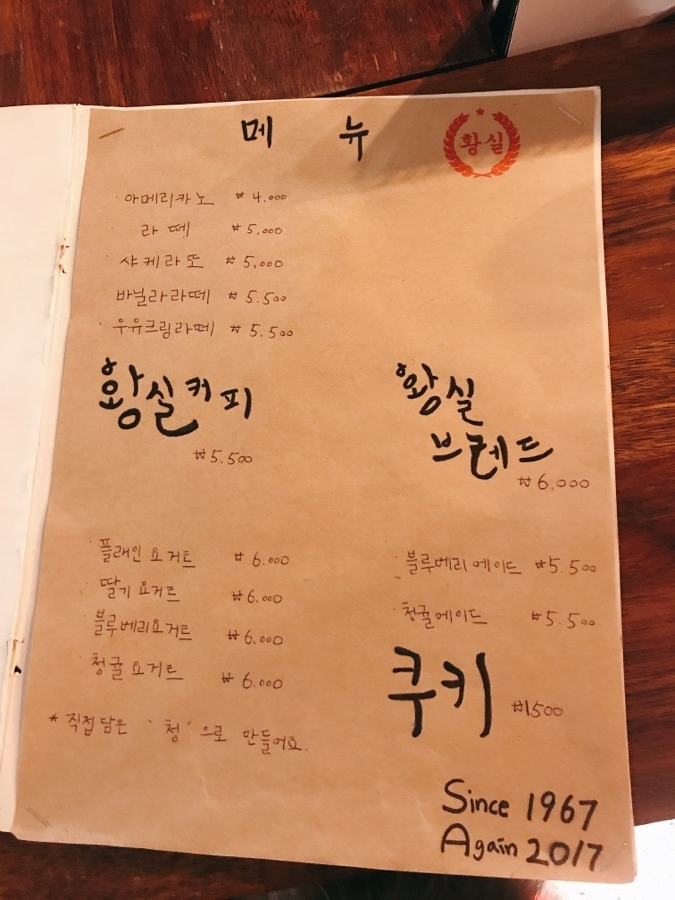 메 뉴
황실
· 아메리카노 ₩ 4.000
라떼 ₩ 5,000
샤케라또 ₩ 5,000
· 바닐라라떼 ₩ 5.500
· 우유크림라떼 ₩ 5.500
황실커피
₩5,500
황실
브레드
₩6,000
· 플래인요거트 ₩ 6.000
· 딸기요거트 ₩ 6.000
· 블루베리요거트 ₩ 6,000
· 청귤요거트 ₩ 6.000
* 직접 담은 '청'으로 만들어요.
· 블루베리에이드 ₩5.500
· 청귤에이드 ₩5.500
쿠키 ₩1500
Since 1967
Again 2017